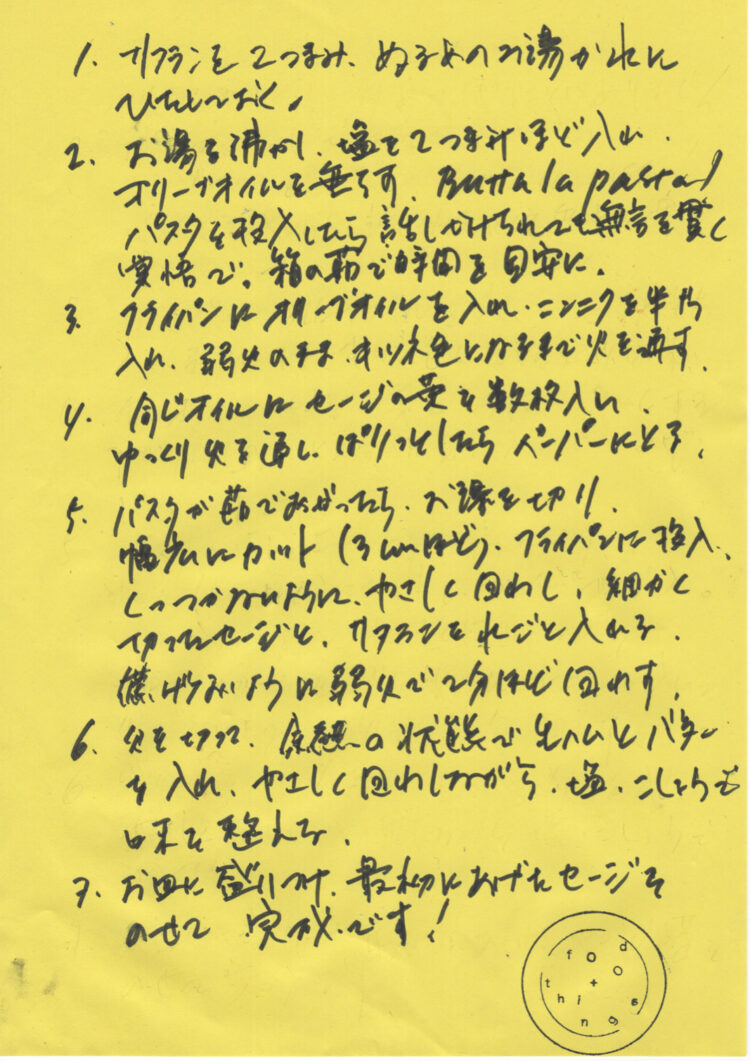 1. サフランを2つまみ、ぬるめのお湯かれに
ひたしておく。
2. お湯を沸かし、塩を2つまみほど入れ、
オリーブオイルを垂らす。Butta la pasta!
パスタを投入したら話しかけられても無言を貫く
覚悟で。箱の茹で時間を目安に。
3. フライパンにオリーブオイルを入れ、ニンニクを半
入れ、弱火のまま、キツネ色になるまで火を通す。
4. 同じオイルにセージの葉を数枚入れ、
ゆっくり火を通し、ぱりっとしたらペーパーにとる。
5. パスタが茹であがったら、お湯を切り、
幅広にカット(3cmほど)、フライパンに投入、
くっつかないように、やさしく回わし、細かく
切ったセージと、サフランをれごと入れる。
焦げないように弱火で2分ほど回わす。
6. 火を切って、余熱の状態で生ハムとバター
を入れ、やさしく回わしながら、塩、こしょうで
味を整える。
7. お皿に盛りつけ、最初にあげたセージを
のせて完成です!
food
+
things